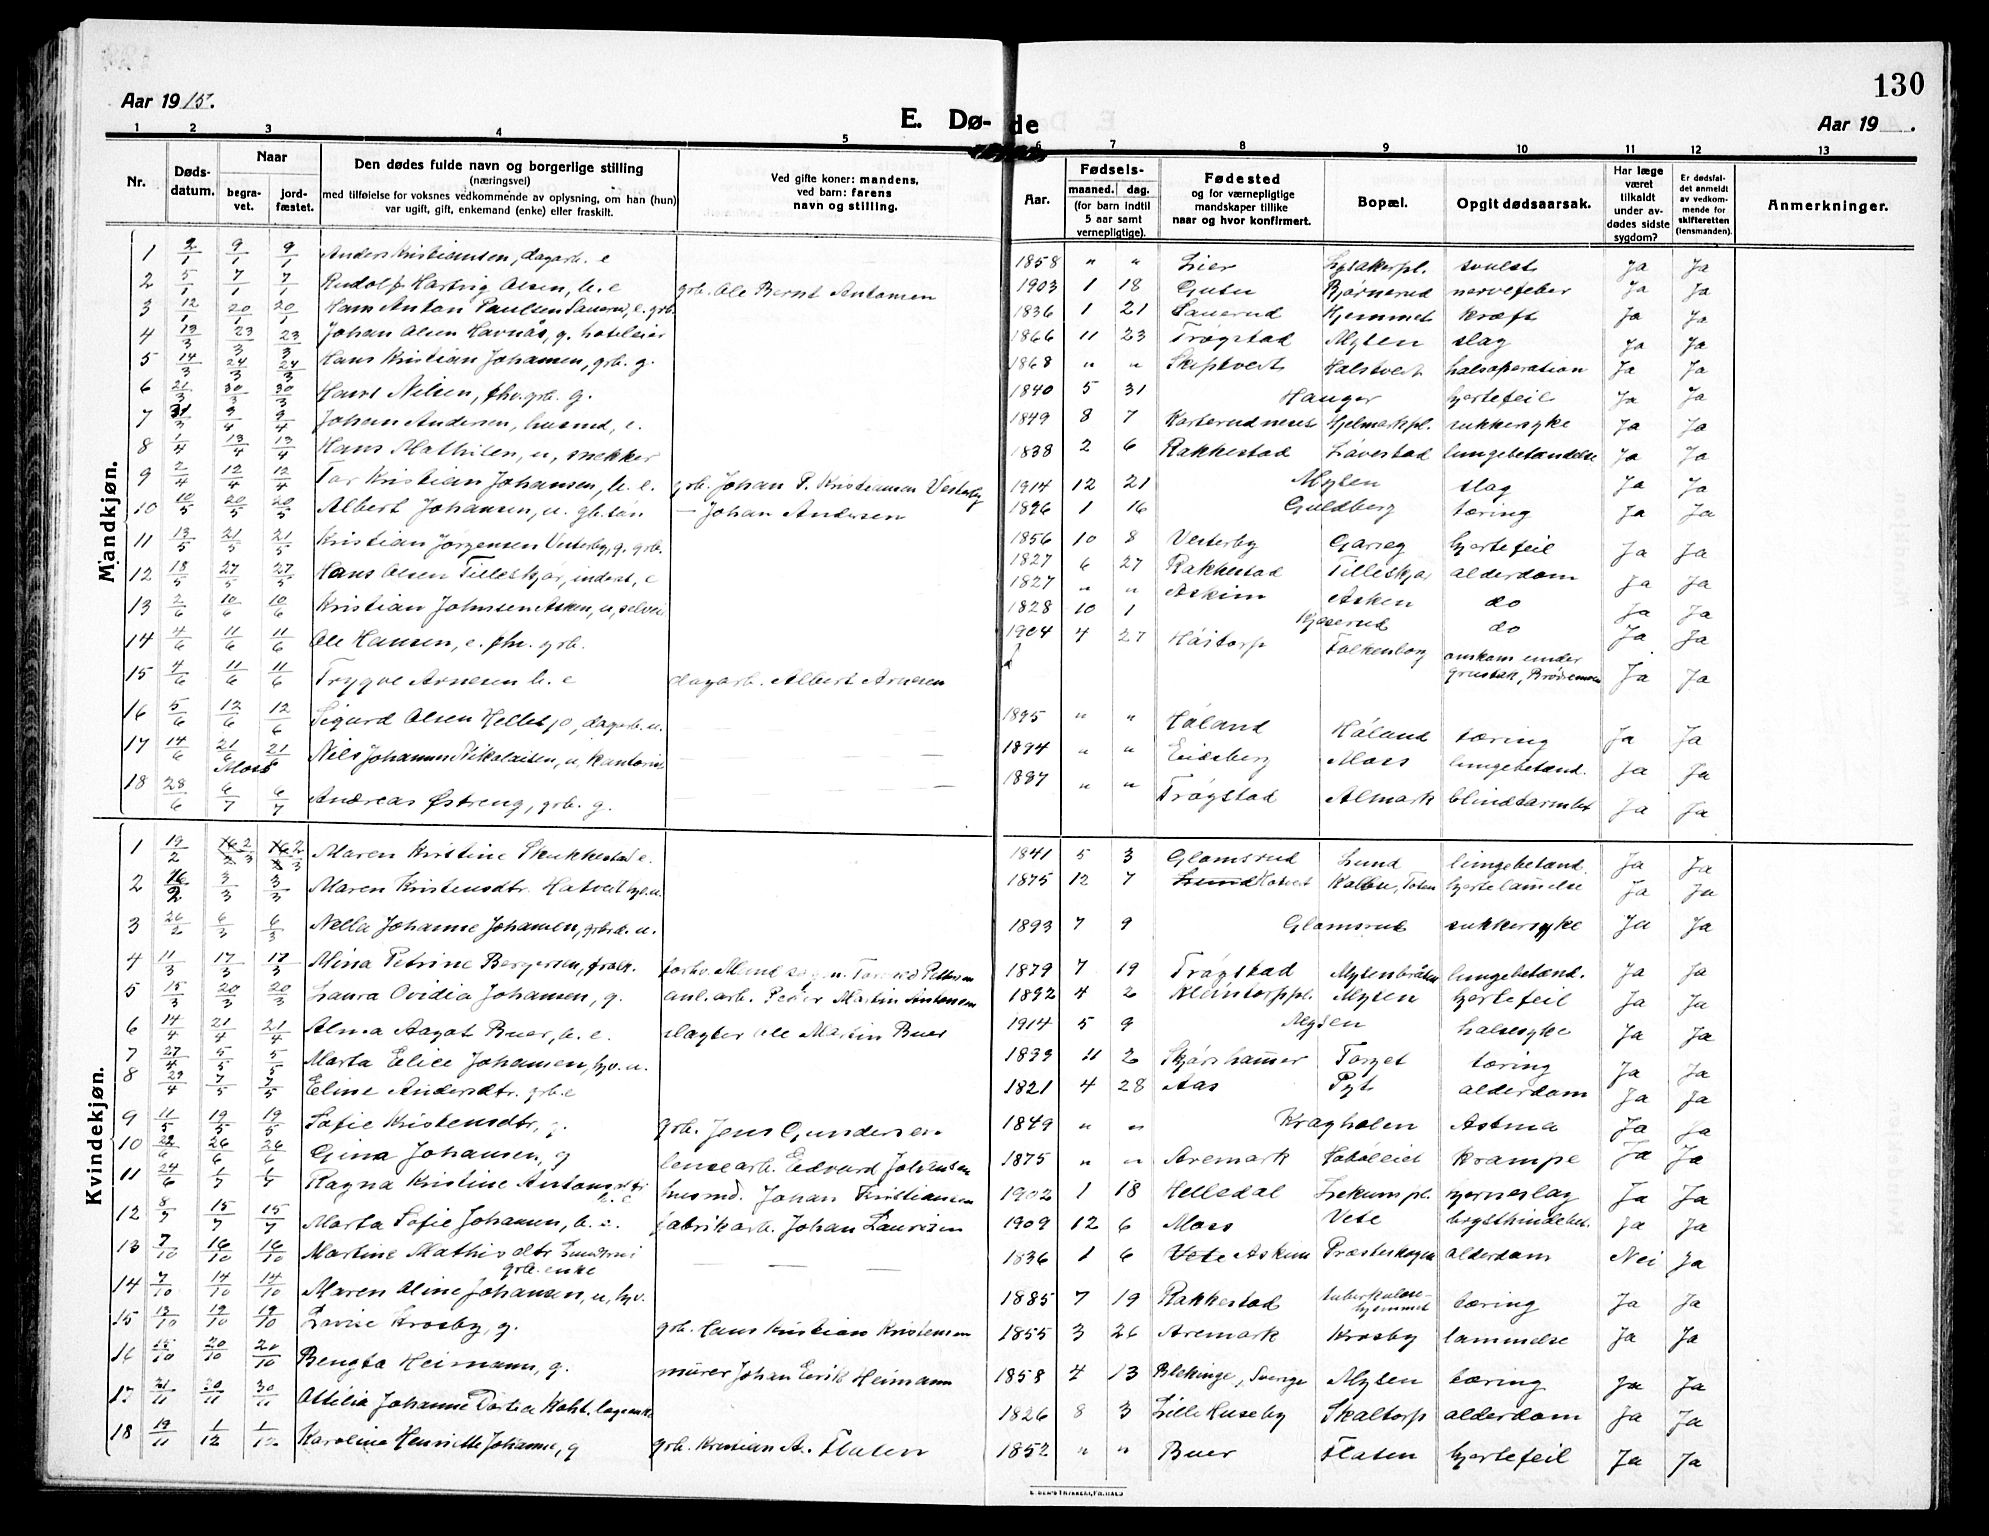 130
Aar 1915.
E. Dø- de
Aar 19 .
1 2 3 4 5 6 7 8 9 10 11 12 13
Nr.
Døds-
datum.
Naar
begra-
vet.
jord-
fæstet.
Den dødes fulde navn og borgerlige stilling
(næringsvei)
med tilføielse for voksnes vedkommende av oplysning, om han (hun)
var ugift, gift, enkemand (enke) eller fraskilt.
Ved gifte koner: mandens,
ved barn: farens
navn og stilling.
Aar.
Fødsels-
maaned. dag.
(for barn indtil
5 aar samt
vernepligtige).
Fødested
og for værnepligtige
mandskaper tillike
naar og hvor konfirmert.
Bopæl.
Opgit dødsaarsak.
Har læge
været
tilkaldt
under av-
dødes sidste
sygdom?
Er dødsfal-
det anmeldt
av vedkom-
mende for
skifteretten
(lensmanden).
Anmerkninger.
Mandkjøn.
1 2/1 9/1 9/1 Anders Kristiansen, dagarb. e 1858 " " Lier Lysakerpl. svulst Ja Ja
2 5/1 7/1 7/1 Rudolf Hartvig Olsen, b. e grb. Ole Bernt Antonsen 1903 1 18 Gutu Bjørnerud nervefeber Ja Ja
3 12/1 20/1 20/1 Hans Anton Paulsen e. grb. 1836 1 21 Sauerud Hjemmet kræft Ja Ja
4 13/3 23/3 23/3 Johan Olsen Havnås, g. hoteleier 1866 11 23 Trøgstad Mysen slag Ja Ja
5 14/3 24/3 24/3 Hans Kristian Johansen, grb. g. 1868 " " Skiptvet Halstvedt halsoperation Ja Ja
6 21/3 30/3 30/3 Hans Nilsen, fhv. grb. g. 1840 5 31 Hauger hjertefeil Ja Ja
7 31/3 9/4 9/4 Johan Andersen, husmd, e. 1849 8 7 Hjelmarkpl. sukkersyke Ja Ja
8 1/4 13/4 13/4 Hans Mathisen, u, snekker 1838 2 6 Rakkestad Løvestad lungebetændelse Ja Ja
9 2/4 12/4 12/4 Tor Kristian Johansen, b. e. grb. Johan P. Kristiansen Vesterby 1914 12 21 Mysen slag Ja Ja
10 10/5 20/5 20/5 Albert Johansen, u. gb. søn — Johan Andersen 1896 1 16 Guldberg tæring Ja Ja
11 13/5 21/5 21/5 Kristian Jørgensen Vesterby, g. grb. 1856 10 8 Vesterby Garseg hjertefeil Ja Ja
12 18/5 27/5 27/5 Hans Olsen Tilleskjør, inderst, e 1827 6 27 Rakkestad Tilleskjø alderdom Ja Ja
13 2/6 10/6 10/6 Kristian Johnsen Asken, u, selveie 1827 " " Askim Asken do Ja Ja
14 4/6 11/6 11/6 Ole Hansen, e. fhv. grb. 1828 10 1 Kjøserud do Ja Ja
15 4/6 11/6 11/6 Trygve Arnesen b. e dagarb. Albert Arnesen 1904 4 27 Høitorp Falkenborg omkom under
grustak, Ja Ja
16 5/6 12/6 12/6 Sigurd Olsen dagarb. u. 1895 " " Høland Høland tæring Ja Ja
17 14/6 21/6 21/6 Nils Johannes Nikolaisen, u, kontorist 1894 " " Eidsberg Moss lungebetænd. Ja Ja
Moss
18 28/6 6/7 6/7 Andreas Østreng, grb. g. 1887 " " Trøgstad Almark blindtarmbet Ja Ja
Kvindekjøn.
1 19/2 2/3 2/3 Maren Kristine e. 1841 5 3 Glomsrud Lund lungebetænd. Ja Ja
2 16/2 3/3 3/3 Maren Kristensdtr. Hatvet u. 1875 12 7 Lund Hatvet Kolbu, Toten hjertelamelse Ja Ja
3 26/2 6/3 6/3 Nella Johanne Johansen, u. 1893 7 9 Glomsrud sukkersyke Ja Ja
4 11/3 17/3 17/3 Mina Petrine Bergersen, 1879 7 19 Trøgstad Mysenbråten lungebetænd. Ja Ja
5 15/3 20/3 20/3 Laura Ovidia Johansen, g. anl. arb. Peder Martin Antonsen 1892 4 2 Kleintorppl. Mysen hjertefeil Ja Ja
6 14/4 21/4 21/4 Alma Aagot Buer, b. e. slagter Ole Martin Buer 1914 5 9 Mysen halssyke Ja Ja
7 27/4 5/5 5/5 Marta Elise Johansen, hjv. u. 1899 11 2 Skjørshammer Torget tæring Ja Ja
8 29/4 7/5 7/5 Eline Andersdtr. grb. e 1821 4 28 Aas Pyt alderdom Ja Ja
9 11/5 19/5 19/5 Sofie Kristensdtr, g grb. Jens Gundersen 1849 " " Kragholen Astma Ja Ja
10 22/6 26/6 26/6 Gina Johansen, g lensearb. Edvard Johansen 1875 " " Aremark krampe Ja Ja
11 24/6 1/7 1/7 Ragna Kristine husmd. Johan Kristiansen 1902 1 18 Helledal Lekumpl. hjerneslag Ja Ja
b. e
12 8/7 15/7 15/7 Marta Sofie Johansen, b. e. fabrikarb. Johan Lauritsen 1909 12 6 Moss Vete brysthindebet. Ja Ja
13 7/10 16/10 16/10 Martine Mathisdtr 1836 1 6 Vete Askim Præsteskogen alderdom Nei Ja
grb. enke
14 7/10 14/10 14/10 Maren Oline Johansen, u, hjv. 1885 7 19 Rakkestad tuberkulose-
hjemmet tæring Ja Ja
15 13/10 19/10 19/10 Lovise Krosby, g. grb. Hans Kristian Kristensen 1855 3 26 Aremark Krosby lammelse Ja Ja
16 15/10 20/10 20/10 Bengta Heimann, g. murer Johan Eerik Heimann 1858 4 13 Blekinge, Sverige Mysen tæring Ja Ja
17 21/11 30/11 30/11 Ottilia Johanne Dortea 1826 8 3 Lille Huseby Skaltorp alderdom Ja Ja
18 19/11 1/12 1/12 Karoline Henriette Johanne, g grb. Kristian A. Flaten 1852 " " Buer Flaten hjertefeil Ja Ja